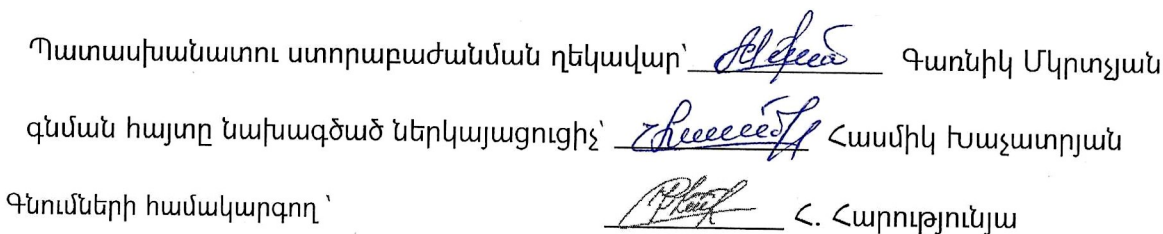 Պատասխանատու ստորաբաժանման ղեկավար՝ Գառնիկ Մկրտչյան
գնման հայտը նախագծած ներկայացուցիչ՝ Հասմիկ Խաչատրյան
Գնումների համակարգող ՝ Հ. Հարությունյա